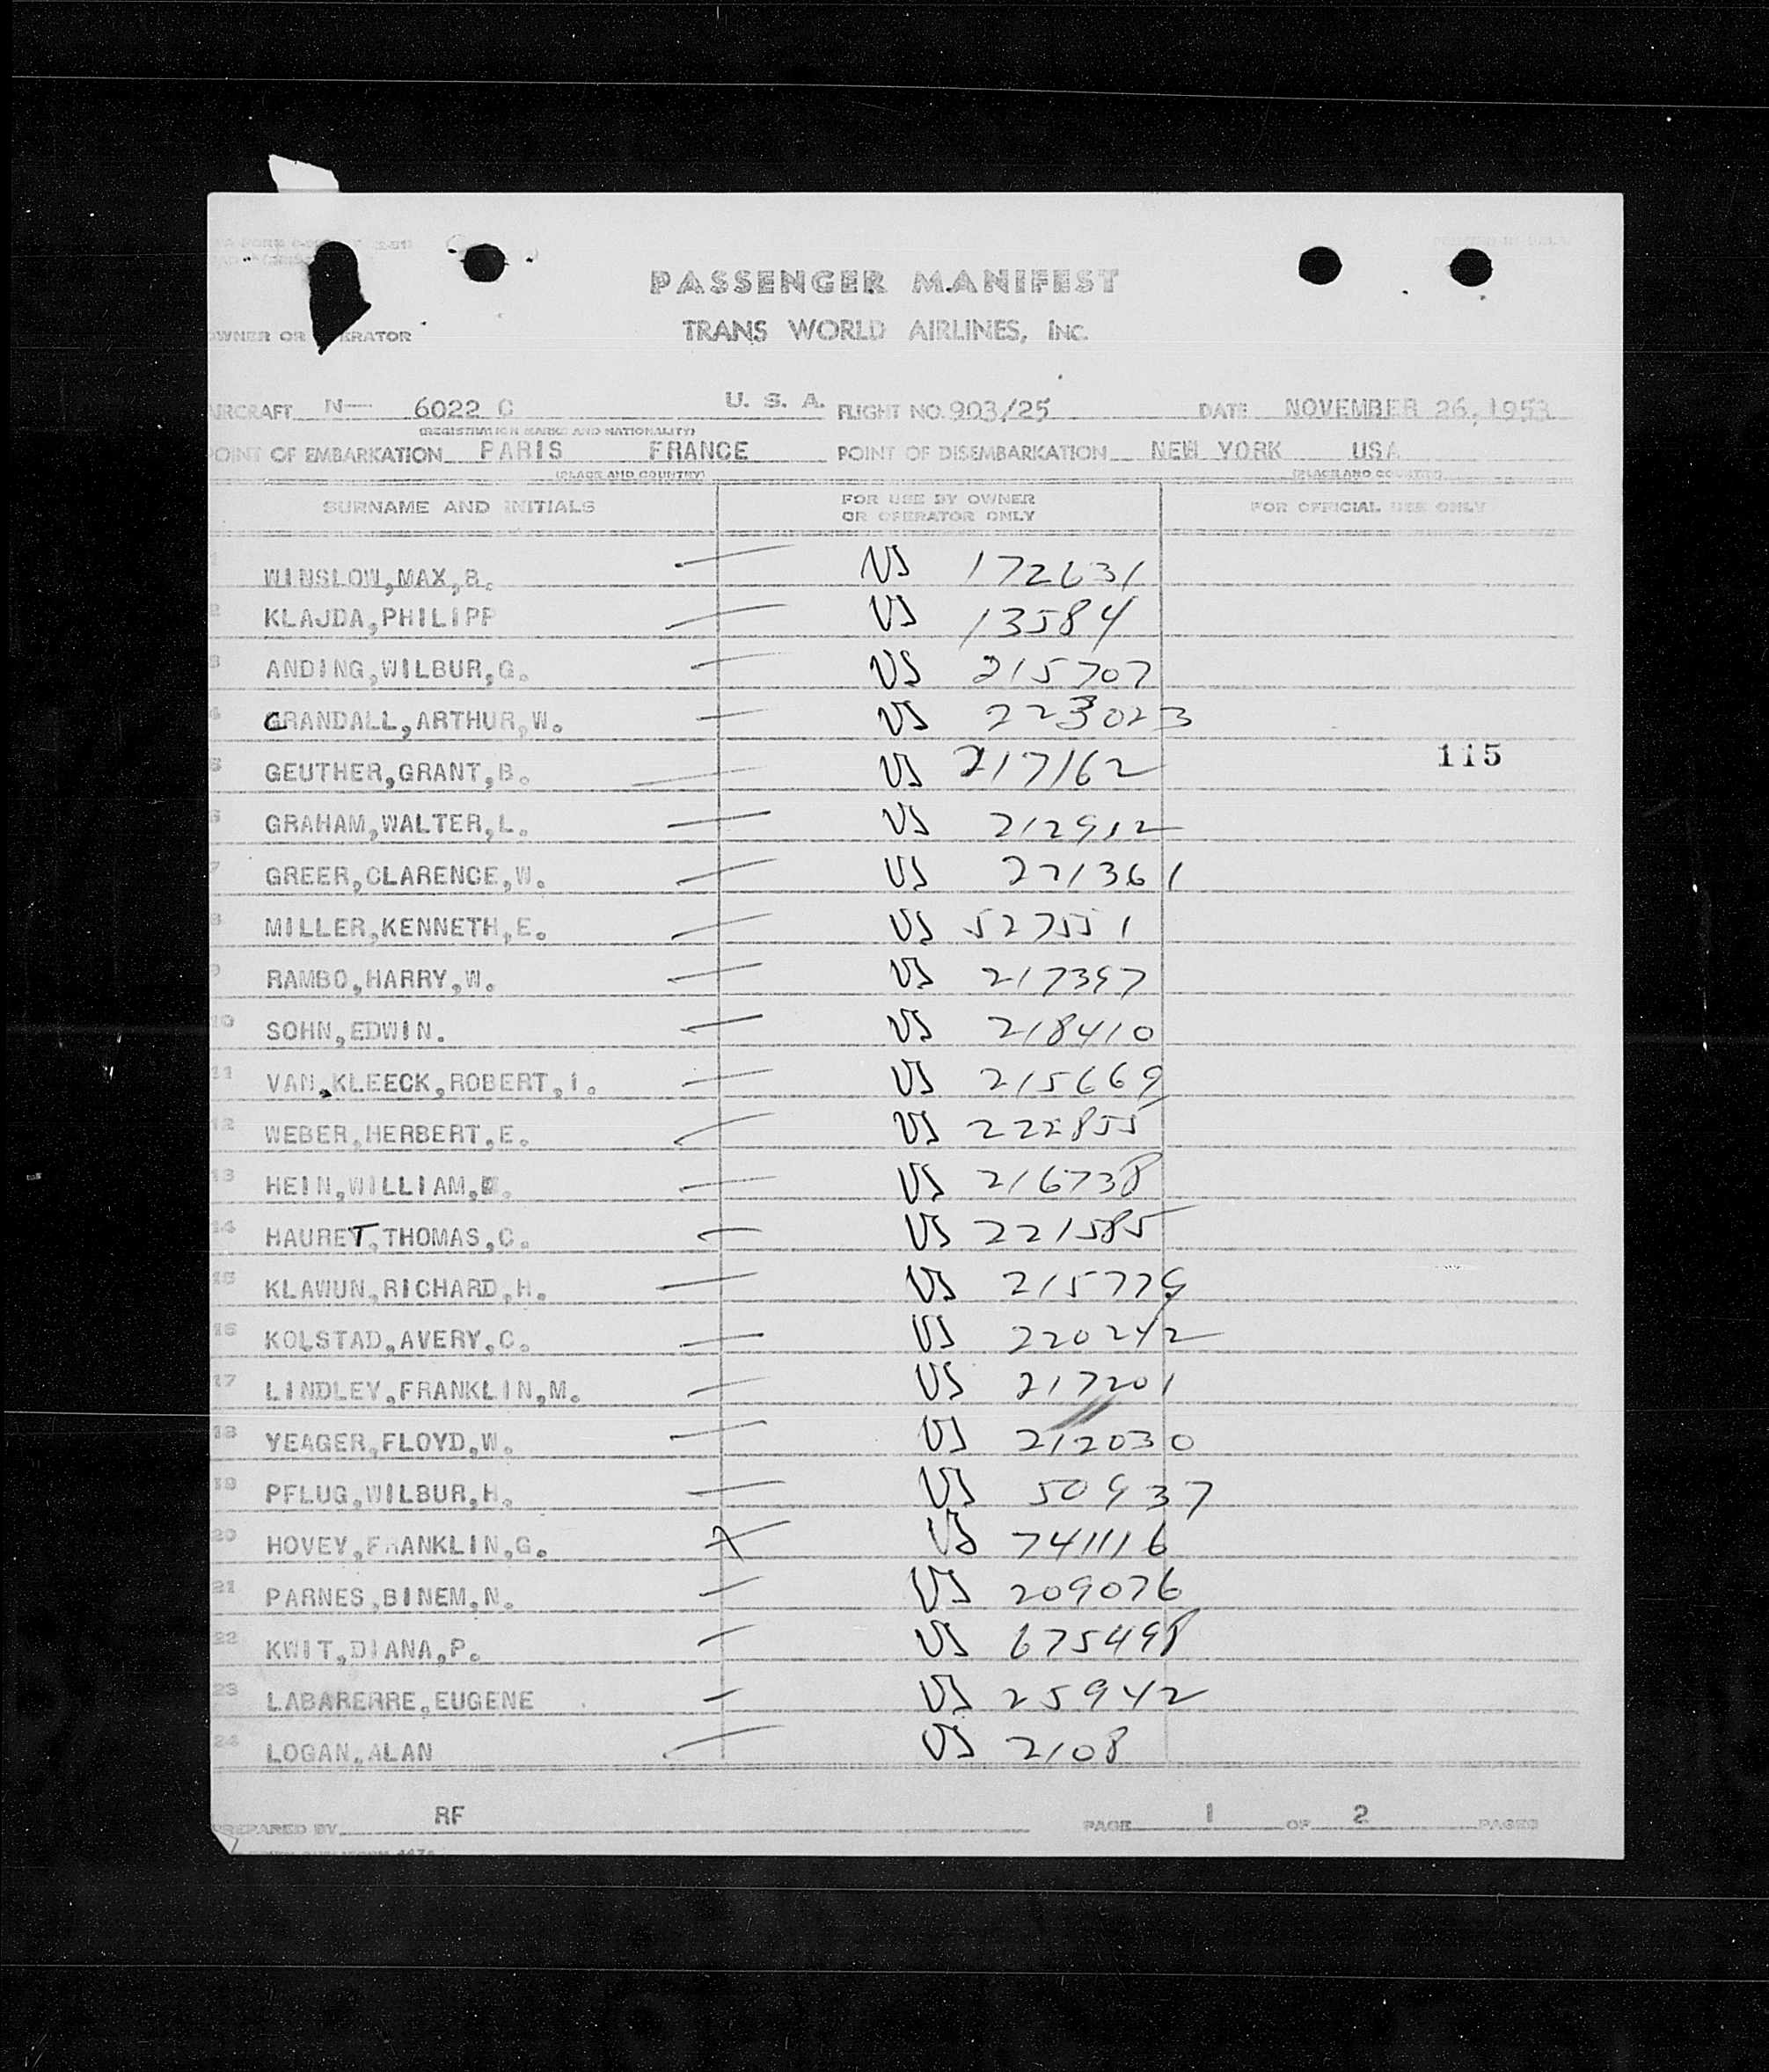 PASSENGER MANIFEST
OWNER OR OPERATOR TRANS WORLD AIRLINES, INC.
AIRCRAFT N— 6022 C U. S. A. FLIGHT NO. 903/25 DATE NOVEMBER 26, 1953
(REGISTRATION MARKS AND NATIONALITY)
POINT OF EMBARKATION PARIS FRANCE POINT OF DISEMBARKATION NEW YORK USA
(PLACE AND COUNTRY) (PLACE AND COUNTRY)
SURNAME AND INITIALS FOR USE BY OWNER OR OPERATOR ONLY FOR OFFICIAL USE ONLY
1 WINSLOW,MAX,B. — US 172631
2 KLAJDA,PHILIPP — US 13584
3 ANDING,WILBUR,G. — US 215707
4 CRANDALL,ARTHUR,W. — US 223023
5 GEUTHER,GRANT,B. — US 217162 115
6 GRAHAM,WALTER,L. — US 212912
7 GREER,CLARENCE,W. — US 221361
8 MILLER,KENNETH,E. — US 527551
9 RAMBO,HARRY,W. — US 217397
10 SOHN,EDWIN. — US 218410
11 VAN,KLEECK,ROBERT,I. — US 215669
12 WEBER,HERBERT,E. — US 222855
13 HEIN,WILLIAM, — US 216738
14 HAURET,THOMAS,C. — US 221585
15 KLAWUN,RICHARD,H. — US 215779
16 KOLSTAD,AVERY,C. — US 220242
17 LINDLEY,FRANKLIN,M. — US 217201
18 YEAGER,FLOYD,W. — US 212030
19 PFLUG,WILBUR,H. — US 50937
20 HOVEY,FRANKLIN,G. X US 741116
21 PARNES,BINEM,N. — US 209076
22 KWIT,DIANA,P. — US 675498
23 LABARERRE,EUGENE — US 25942
24 LOGAN,ALAN — US 2108
PREPARED BY RF PAGE 1 OF 2 PAGES